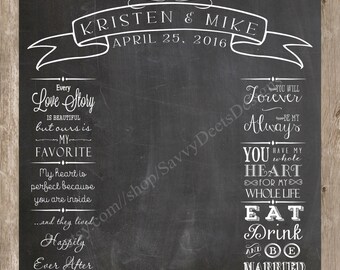 KRISTEN & MIKE
APRIL 25, 2016
Every
Love Story
IS BEAUTIFUL
but ours is
MY
FAVORITE
My heart is
perfect because
you are inside
...and they lived
Happily
Ever After
YOU WILL
Forever
BE MY
Always
YOU HAVE MY
whole
HEART
FOR MY
WHOLE LIFE.
EAT
Drink
AND BE
MARRIED
.com/shop/SavvyDeetsD